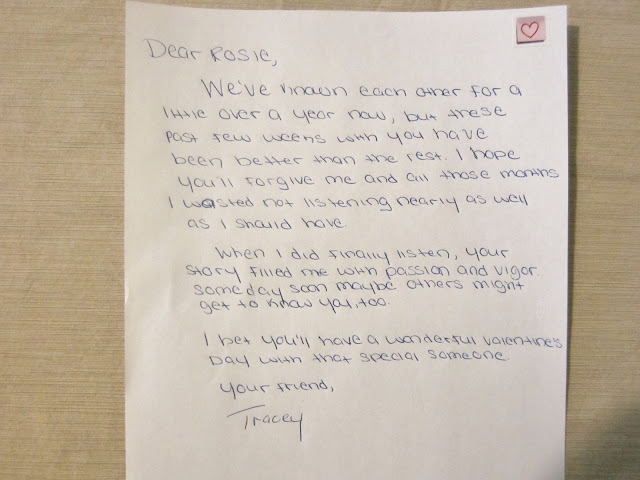 Dear Rosie,
We've known each other for a
little over a year now, but these
past few weeks with you have
been better than the rest. I hope
you'll forgive me and all those months
I wasted not listening nearly as well
as I should have.
When I did finally listen, your
story filled me with passion and vigor.
someday soon maybe others might
get to know you, too.
I bet you'll have a wonderful valentine's
Day with that special someone.
Your friend,
Tracey